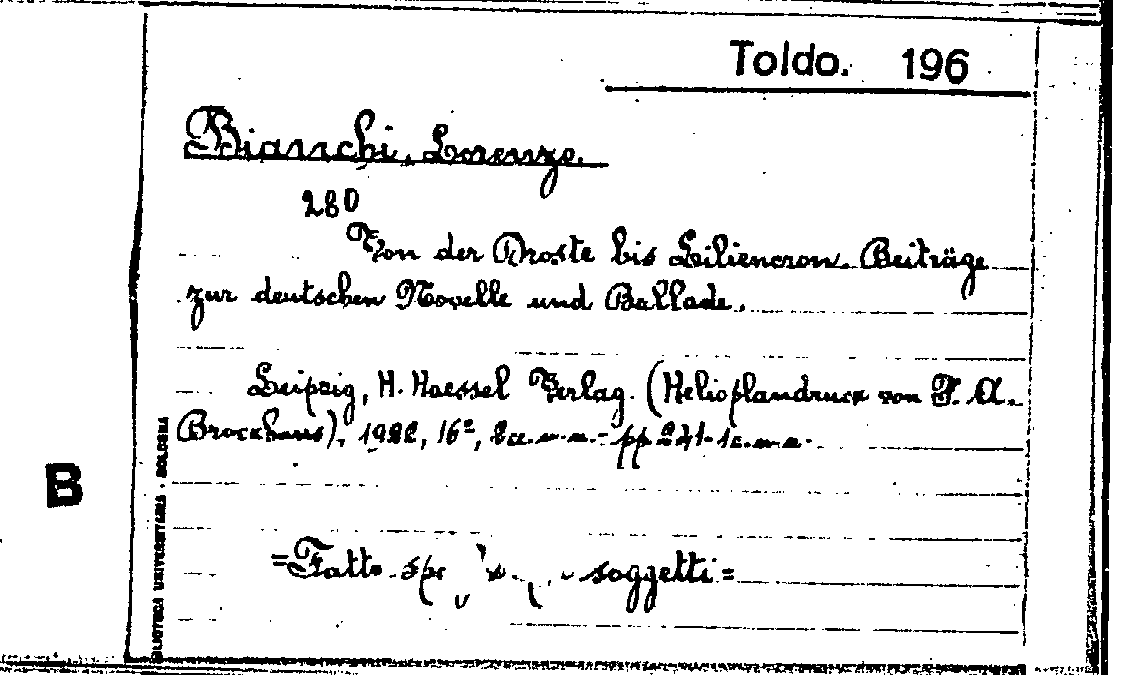 Toldo. 196
Bianchi, Lorenzo.
280
Von der Droste bis Liliencron. Beiträge
zur deutschen Novelle und Ballade.
Leipzig, H. Haessel Verlag. (Helioplandruck von F. A.
Brockhaus), 1922, 16º, 2c.n.n. - pp 241-1c.n.n.
B
BIBLIOTECA UNIVERSITARIA - BOLOGNA
=Fatto soggetti=